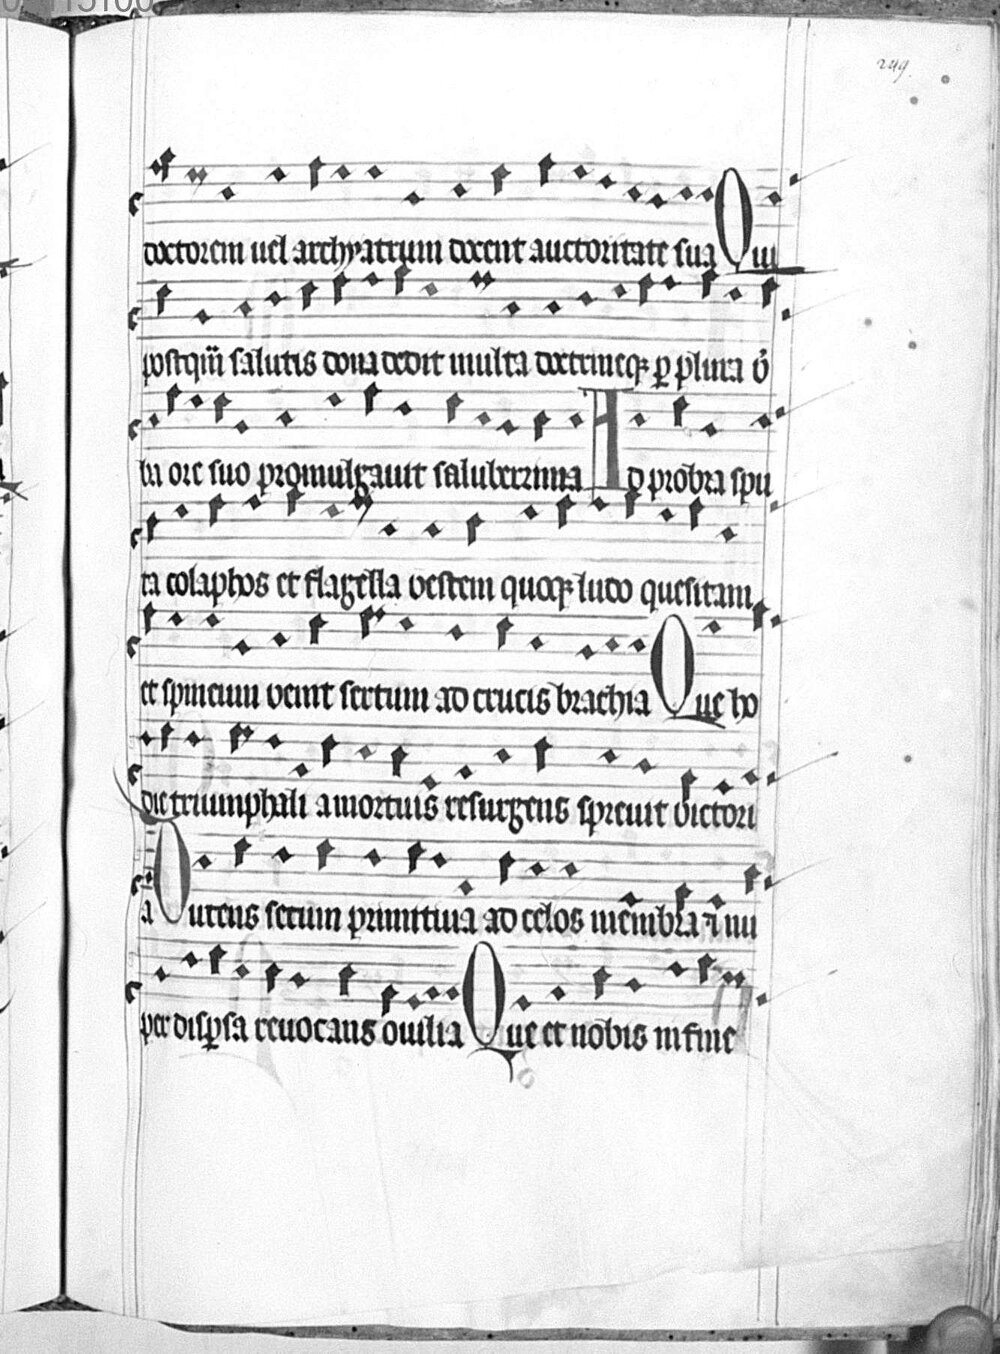 249
doctorem uel archyatrum docent auctoritate sua Qui
postqm̄ salutis dona dedit multa doctrineqꝫ ꝑ plura v̾
ba ore suo promulgauit saluberrima Ad probra spu
ta colaphos et flagella vestem quoqꝫ ludo quesitam
et spineum venit sertum ad crucis brachia Que ho
die triumphali a mortuis resurgens spreuit victori
a Ducens secum primitiua ad celos membra
per disꝑsa reuocans ouilia Que et nobis in fine